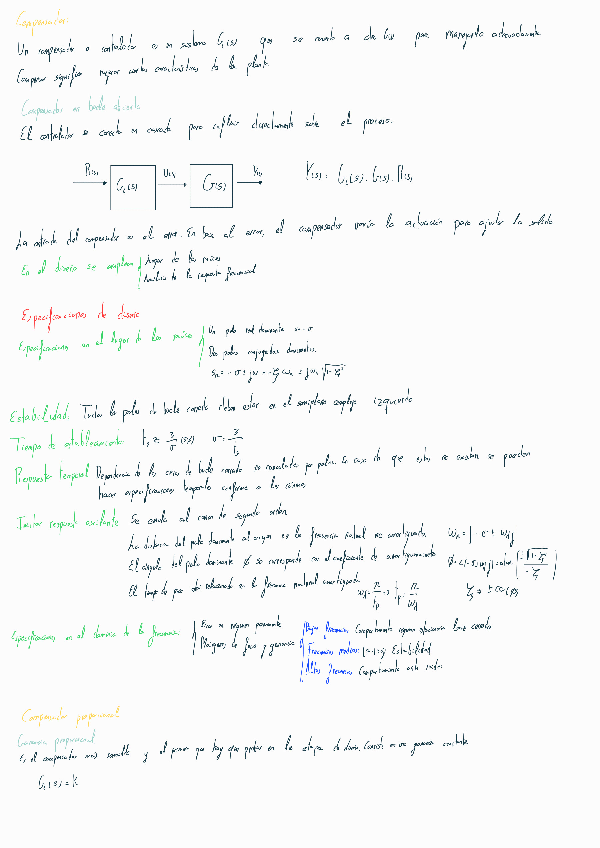 Compensador:
Un compensador o controlador es un sistema Gc(s) que se conecta a de G(s) para manejarla adecuadamente.
Compensar significa mejorar ciertas características de la planta
Compensador en bucle abierto
El controlador se conecta en cascada para influir directamente sobre el proceso.
R(s) Gc(s) U(s) G(s) Y(s) Y(s) = Gc(s) · G(s) · R(s)
La entrada del compensador es el error. En base al error, el compensador varía la actuación para ajustar la salida
En el diseño se emplean
Lugar de las raíces
Análisis de la respuesta frecuencial
Especificaciones de diseño
Especificaciones en el lugar de las raíces
Un polo real dominante s = -σ
Dos polos conjugados dominantes.
Estabilidad: Todos los polos de bucle cerrado deben estar en el semiplano complejo izquierdo
Tiempo de establecimiento ts ≈ 3/σ (5%) σ = 3/ts
Respuesta temporal Dependencia de los ceros de bucle cerrado no cancelados por polos. En caso de que estos no existan se pueden
hacer especificaciones temporales conforme a los mismos
Factor temporal oscilante Se emula al caso de segundo orden
La distancia del polo dominante al origen es la frecuencia natural no amortiguada.
El ángulo del polo dominante φ se corresponde con el coeficiente de amortiguamiento
El tiempo de pico está relacionado con la frecuencia natural amortiguada
Especificaciones en el dominio de la frecuencia
Error en régimen permanente
Márgenes de fase y ganancia
Bajas frecuencias Comportamiento régimen estacionario bucle cerrado
Frecuencias medias Estabilidad
Altas frecuencias Comportamiento ante ruidos
Compensador proporcional
Ganancia proporcional
Es el compensador más sencillo y el primero que hay que probar en la etapa de diseño. Consiste en una ganancia constante
Gc(s) = K